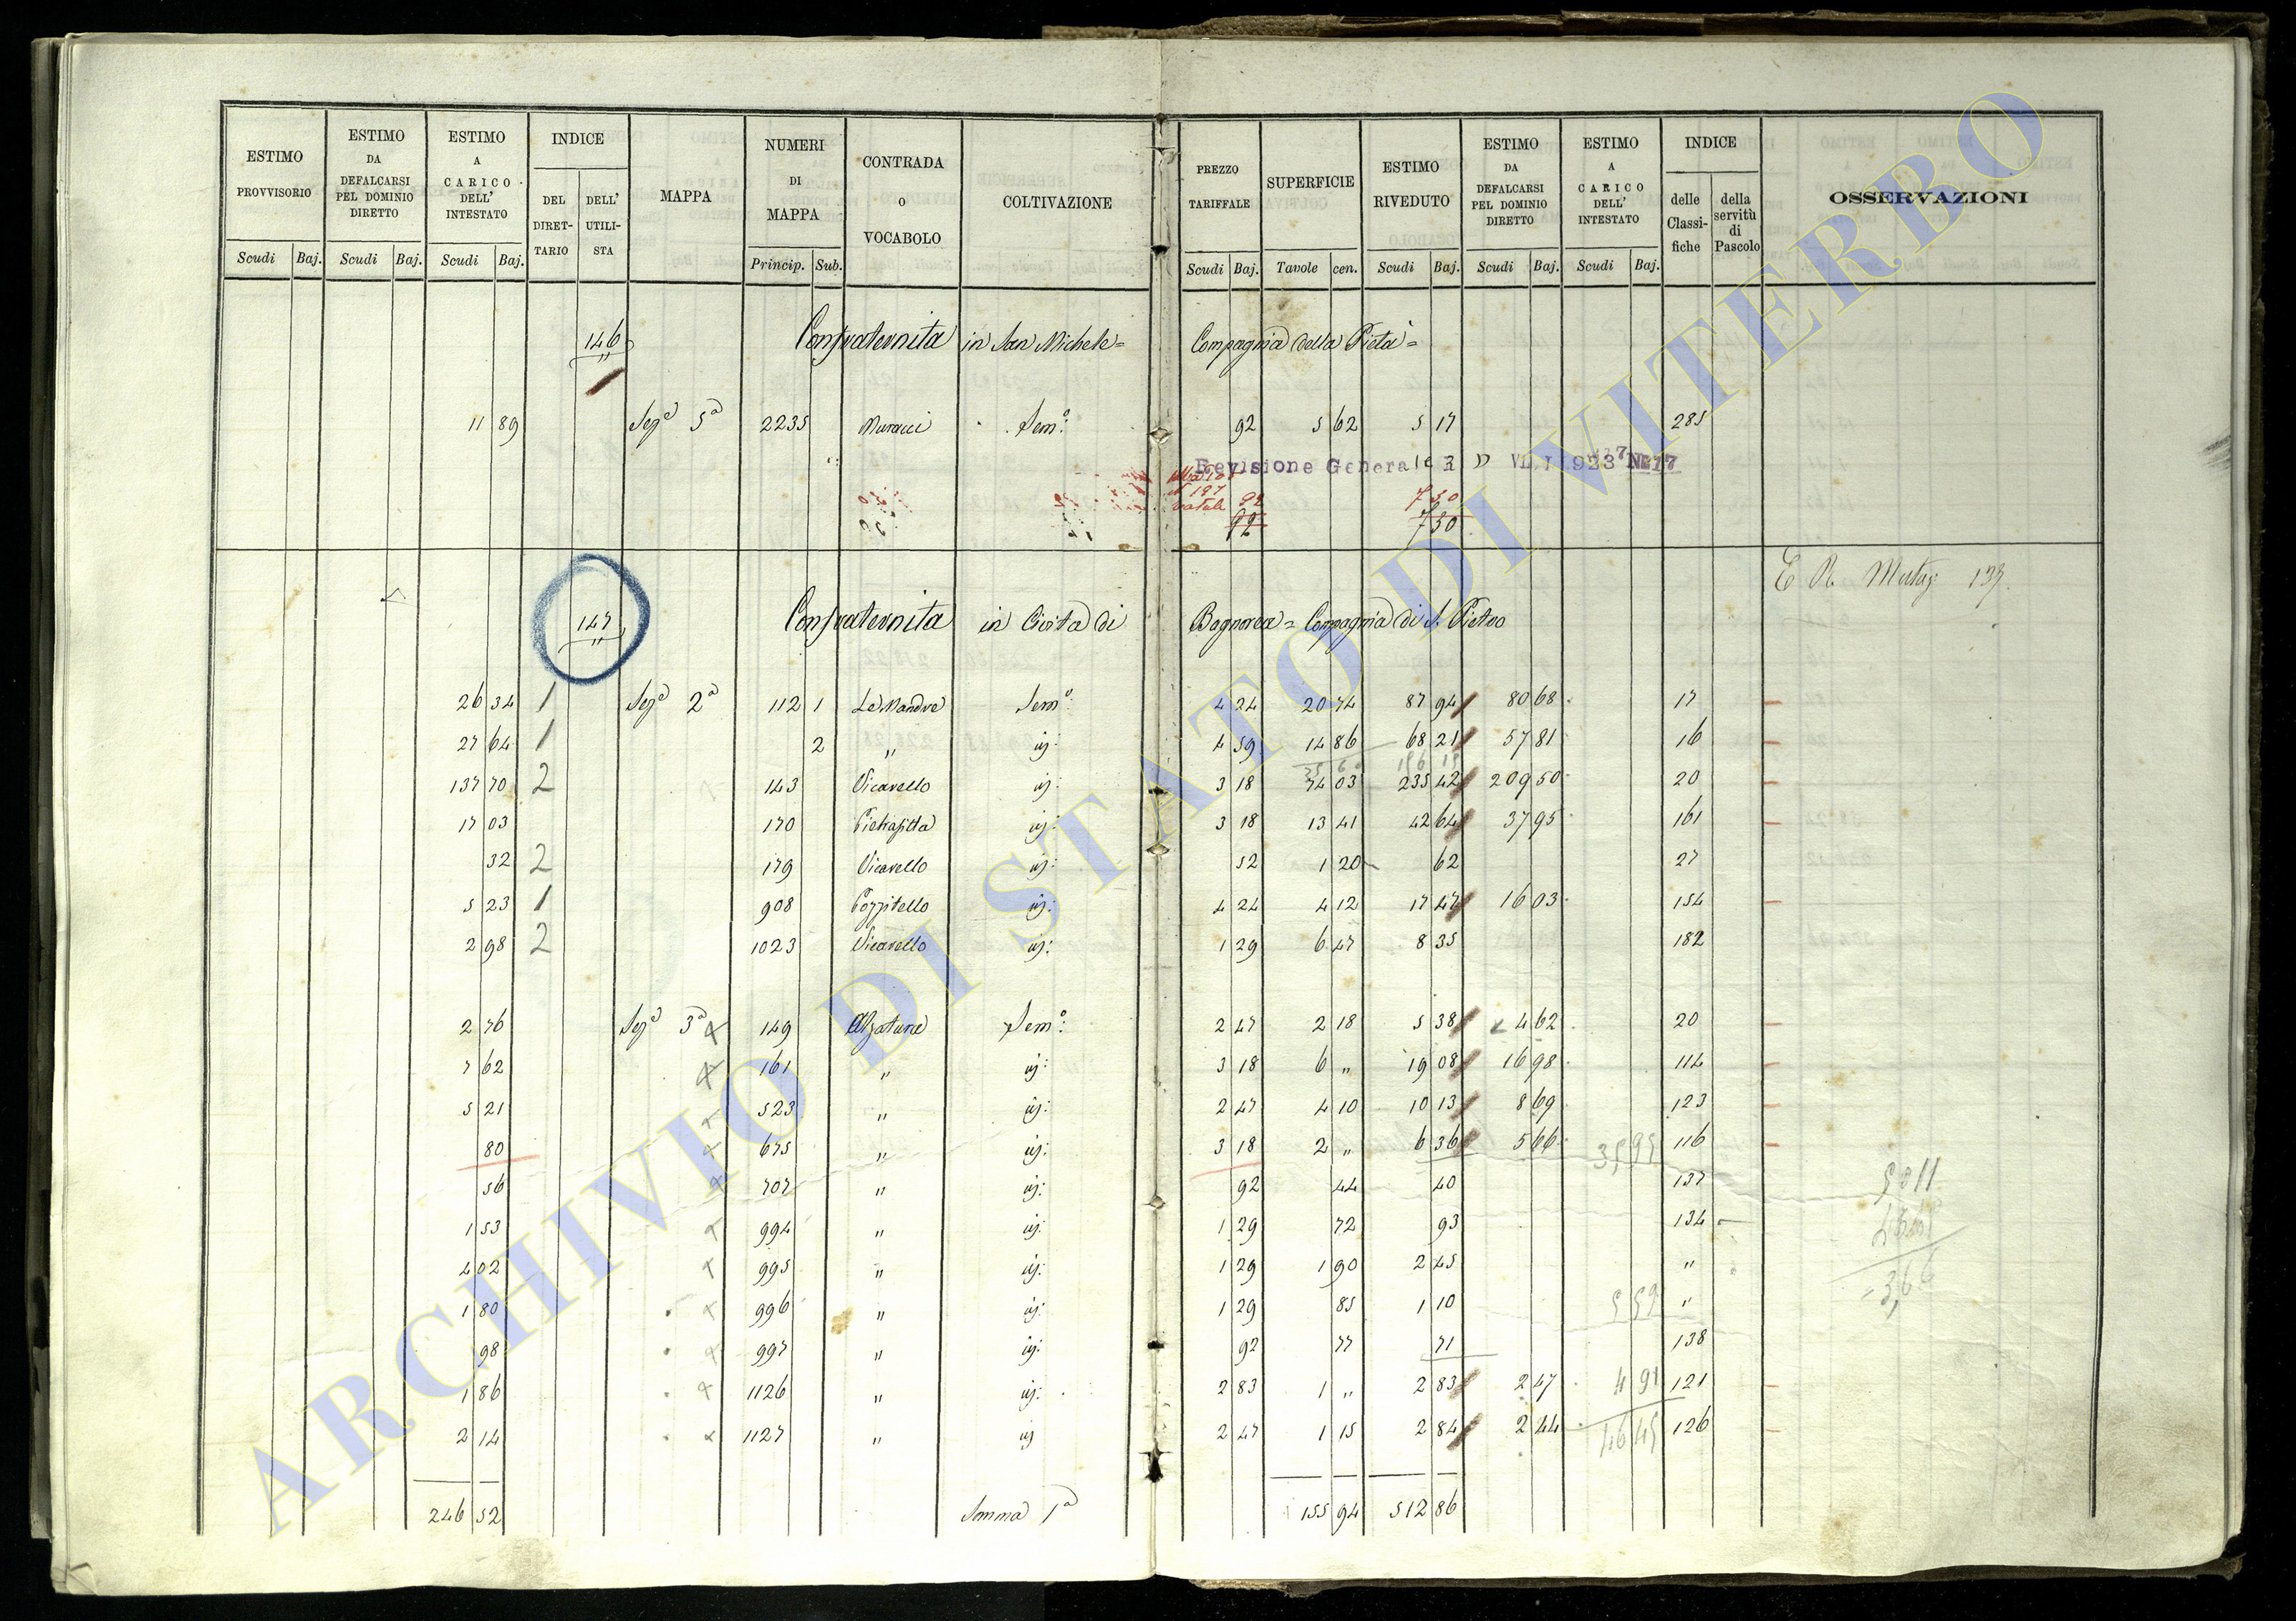 ESTIMO PROVVISORIO Scudi Baj. ESTIMO DA DEFALCARSI PEL DOMINIO DIRETTO Scudi Baj. ESTIMO A CARICO DELL' INTESTATO Scudi Baj. INDICE DEL DIRETTARIO DELL' UTILISTA MAPPA NUMERI DI MAPPA Princip. Sub. CONTRADA O VOCABOLO COLTIVAZIONE PREZZO TARIFFALE Scudi Baj. SUPERFICIE Tavole cen. ESTIMO RIVEDUTO Scudi Baj. ESTIMO DA DEFALCARSI PEL DOMINIO DIRETTO Scudi Baj. ESTIMO A CARICO DELL' INTESTATO Scudi Baj. INDICE delle Classifiche della servitù di Pascolo OSSERVAZIONI
146 Confraternita in San Michele = Compagnia della Pietà =
11 89 Sez.e 5a 2235 Muracci Sem.o 92 5 62 5 17 285
Revisione Generale
92 7 30
92 7 30
E R Mutaz: 137.
147 Confraternita in Civita di Bagnorea = Compagnia di S. Pietro
26 34 1 Sez.e 2a 112 1 Le Mandre Sem.o 4 24 20 74 87 94 80 68 17
27 64 1 2 " id: 4 59 14 86 68 21 57 81 16
137 70 2 143 Vicarello id: 3 18 74 03 235 42 209 50 20
17 03 170 Pietrafitta id: 3 18 13 41 42 64 37 95 161
32 2 179 Vicarello id: 52 1 20 62 27
5 23 1 908 Pozzitello id: 4 24 4 12 17 47 16 03 154
2 98 2 1023 Vicarello id: 1 29 6 47 8 35 182
2 76 Sez.e 3a 149 Alzature Sem.o 2 47 2 18 5 38 4 62 20
7 62 161 " id: 3 18 6 " 19 08 16 98 114
5 21 523 " id: 2 47 4 10 10 13 8 69 123
80 675 " id: 3 18 2 " 6 36 5 66 35 95 116
56 707 " id: 92 44 40 137 50 11
1 53 994 " id: 1 29 72 93 134
4 02 995 " id: 1 29 1 90 2 45 " 3,66
1 80 996 " id: 1 29 85 1 10 5 59 "
98 997 " id: 92 77 71 138
1 86 1126 " id: 2 83 1 " 2 83 2 47 4 91 121
2 14 1127 " id 2 47 1 15 2 84 2 44 46 45 126
246 52 Somma 1a 155 94 512 86
ARCHIVIO DI STATO DI VITERBO